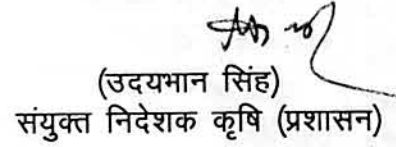 (उदयभान सिंह)
संयुक्त निदेशक कृषि (प्रशासन)